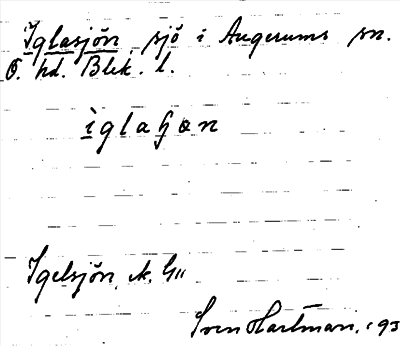 Iglasjön, sjö i Augerums sn.
Ö. hd. Blek. l.
ìglaʃɔn
Igelsjön,
Sven Hartman, 193